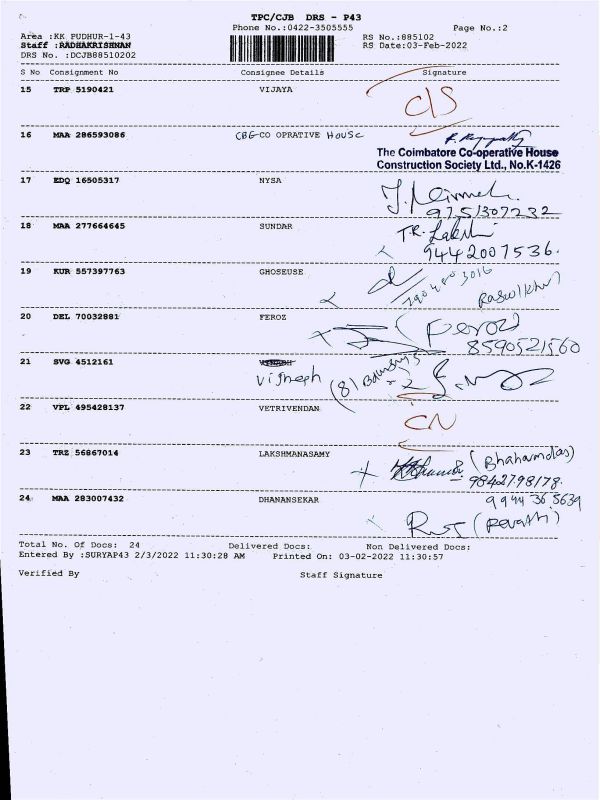 TPC/CJB DRS - P43
Phone No.:0422-3505555 Page No.:2
Area :KK PUDHUR-1-43 RS No.:885102
Staff :RADHAKRISHNAN RS Date:03-Feb-2022
DRS No. :DCJB88510202
S No Consignment No Consignee Details Signature
15 TRP 5190421 VIJAYA
C/S
16 MAA 286593086 CBE-CO OPRATIVE HOUSE
The Coimbatore Co-operative House
Construction Society Ltd., No.K-1426
17 EDQ 16505317 NYSA
9751307232
18 MAA 277664645 SUNDAR T.R. Lakshi
9442007536.
19 KUR 557397763 GHOSEUSE
20 DEL 70032881 FEROZ (Feroz)
8590521560
21 SVG 4512161
Vignesh
22 VPL 495428137 VETRIVENDAN
CN
23 TRZ 56867014 LAKSHMANASAMY (Bhahamdas)
9842798178.
24 MAA 283007432 DHANANSEKAR 9944365639
(Revathi)
Total No. Of Docs: 24 Delivered Docs: Non Delivered Docs:
Entered By :SURYAP43 2/3/2022 11:30:28 AM Printed On: 03-02-2022 11:30:57
Verified By Staff Signature